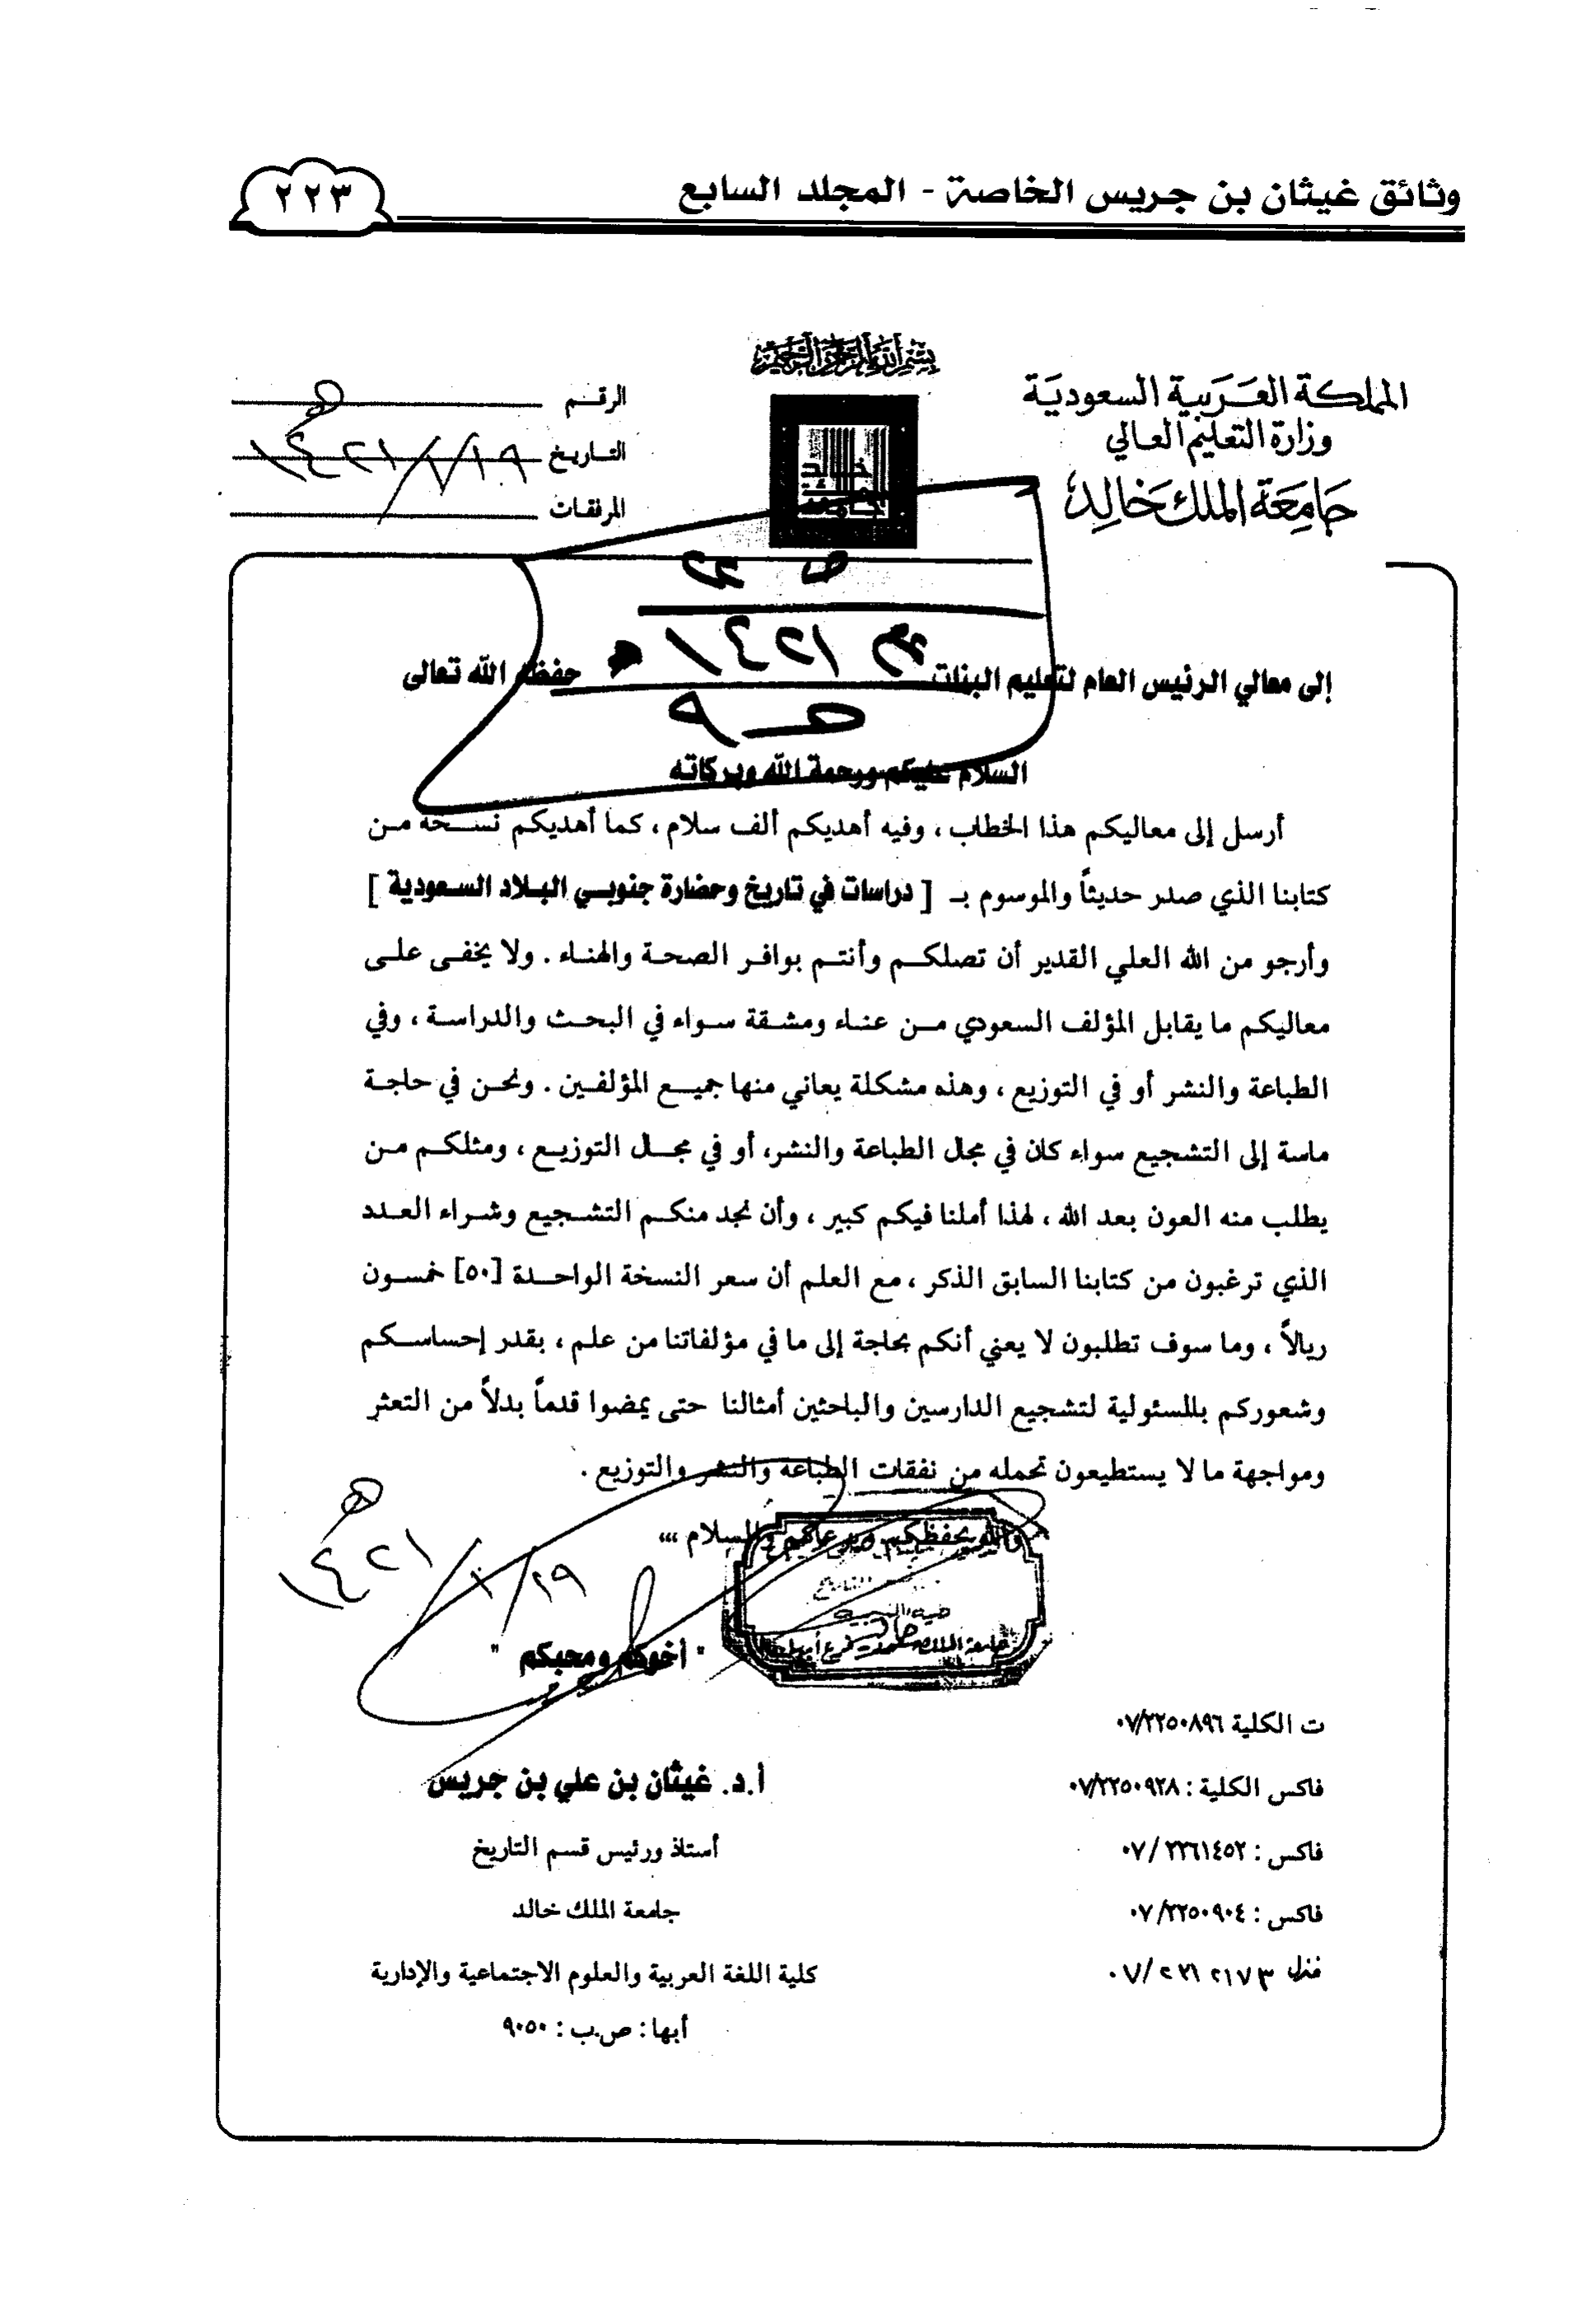 وثائق غيثان بن جريس الخاصة - المجلد السابع
٢٢٣
بسم الله الرحمن الرحيم
المملكة العربية السعودية
وزارة التعليم العالي
جامعة الملك خالد
الرقم
التاريخ ١٤٢١/ /١٩ هـ
المرفقات
١٤٢١
إلى معالي الرئيس العام لتعليم البنات حفظه الله تعالى
السلام عليكم ورحمة الله وبركاته
أرسل إلى معاليكم هذا الخطاب ، وفيه أهديكم ألف سلام ، كما أهديكم نسخة من
كتابنا الذي صدر حديثاً والموسوم بـ [ دراسات في تاريخ وحضارة جنوبي البلاد السعودية ]
وأرجو من الله العلي القدير أن تصلكم وأنتم بوافر الصحة والهناء . ولا يخفى على
معاليكم ما يقابل المؤلف السعودي من عناء ومشقة سواء في البحث والدراسة ، وفي
الطباعة والنشر أو في التوزيع ، وهذه مشكلة يعاني منها جميع المؤلفين . ونحن في حاجة
ماسة إلى التشجيع سواء كان في مجال الطباعة والنشر، أو في مجال التوزيع ، ومثلكم من
يطلب منه العون بعد الله ، لهذا أملنا فيكم كبير ، وأن نجد منكم التشجيع وشراء العدد
الذي ترغبون من كتابنا السابق الذكر ، مع العلم أن سعر النسخة الواحدة [٥٠] خمسون
ريالاً ، وما سوف تطلبون لا يعني أنكم بحاجة إلى ما في مؤلفاتنا من علم ، بقدر إحساسكم
وشعوركم بالمسئولية لتشجيع الدارسين والباحثين أمثالنا حتى يمضوا قدماً بدلاً من التعثر
ومواجهة ما لا يستطيعون تحمله من نفقات الطباعة والنشر والتوزيع .
والله يحفظكم ويرعاكم والسلام ،،،
١٤٢١/ /١٩ هـ
" أخوكم ومحبكم "
أ.د. غيثان بن علي بن جريس
أستاذ ورئيس قسم التاريخ
جامعة الملك خالد
كلية اللغة العربية والعلوم الاجتماعية والإدارية
أبها : ص.ب : ٩٠٥٠
ت الكلية ٠٧/٢٢٥٠٨٩٦
فاكس الكلية : ٠٧/٢٢٥٠٩٢٨
فاكس : ٠٧/٢٢٦١٤٥٢
فاكس : ٠٧/٢٢٥٠٩٠٤
منزل ٠٧/٢٢٦٢١٧٣